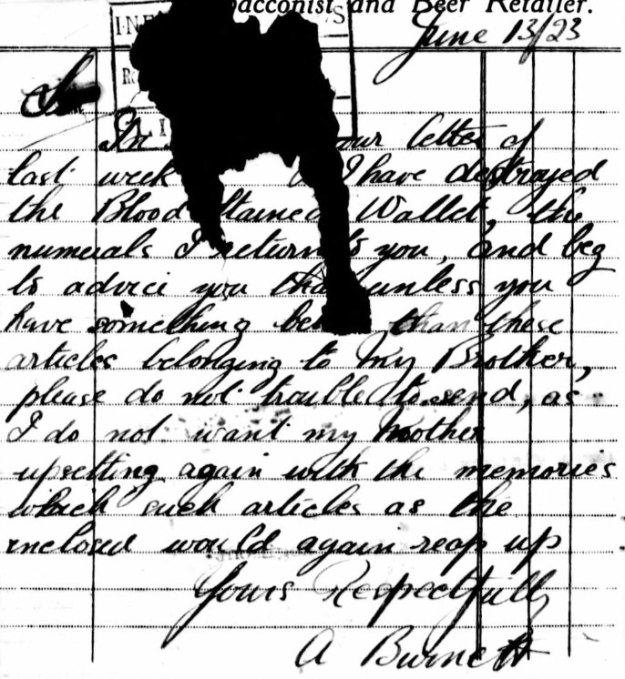 and Beer Retailer.
June 13/23
In our letter of
last week I have destroyed
the Blood Stained Wallet, the
numerals I return to you, and beg
to advice you that unless you
have something be than these
articles belonging to my Brother,
please do not trouble to send, as
I do not want my Mother
upsetting again with the memories
which such articles as the
inclosed would again reap up
Yours Respectfully
A Burnett